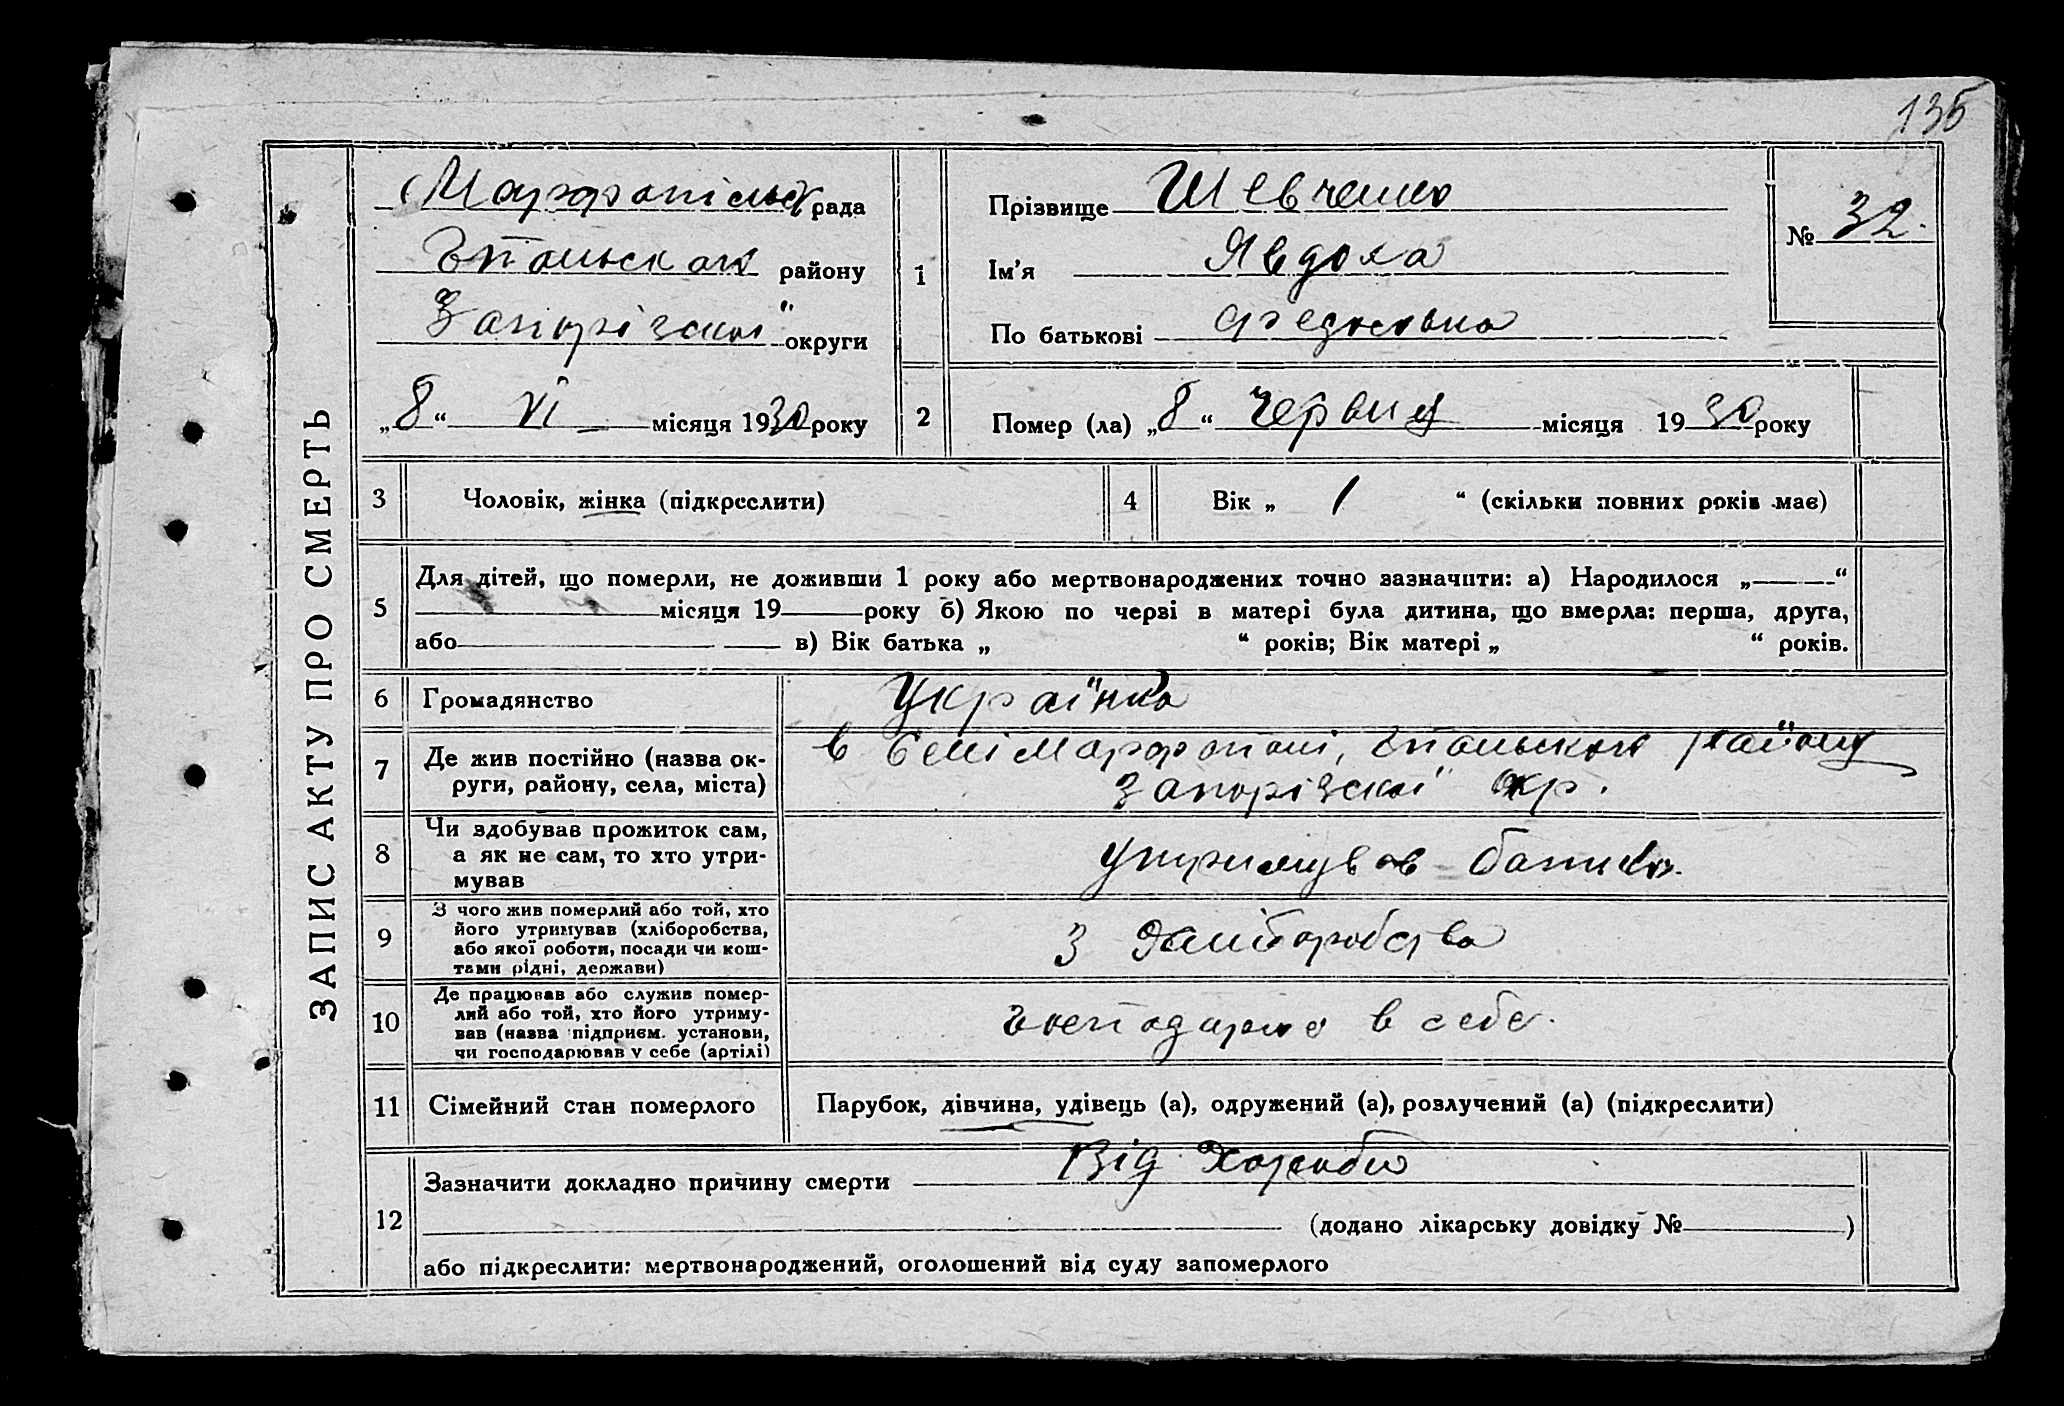 135
ЗАПИС АКТУ ПРО СМЕРТЬ
Марфопільск рада
району
Запорізскої округи
„8“ VI місяця 1930 року
1
Прізвище Шевченко
Ім’я Явдоха
По батькові Федосовна
№ 32.
2
Помер (ла) „8“ Червня місяця 1930 року
3 Чоловік, жінка (підкреслити)
4 Вік „ 1 “ (скільки повних років має)
5
Для дітей, що померли, не доживши 1 року або мертвонароджених точно зазначити: а) Народилося „ “
місяця 19 року б) Якою по черзі в матері була дитина, що вмерла: перша, друга,
або в) Вік батька „ “ років; Вік матері „ “ років.
6 Громадянство Українка
7 Де жив постійно (назва ок-
руги, району, села, міста)
в Селі Марфополі, району
Запорізскої Окр.
8 Чи здобував прожиток сам,
а як не сам, то хто утри-
мував
утримував батько.
9 З чого жив померлий або той, хто
його утримував (хліборобства,
або якої роботи, посади чи кош-
тами рідні, держави)
З Хліборобства
10 Де працював або служив помер-
лий або той, хто його утриму-
вав (назва підприєм. установи,
чи господарював у себе (артілі)
в себе.
11 Сімейний стан померлого Парубок, дівчина, удівець (а), одружений (а), розлучений (а) (підкреслити)
12
Зазначити докладно причину смерти Від Хороби
(додано лікарську довідку № )
або підкреслити: мертвонароджений, оголошений від суду запомерлого